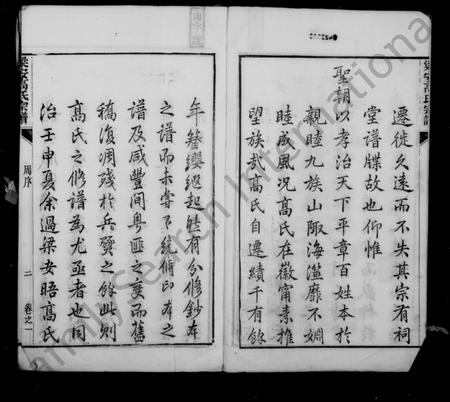 遷徙久遠而不失其宗有祠
堂譜牒故也仰惟
聖朝以孝治天下平章百姓本於
親睦九族山陬海澨靡不姻
睦成風况髙氏在徽甯素推
望族哉髙氏自遷績千有餘
年簪纓繼起雖有分修鈔本
之譜而未嘗有統修印本之
譜及咸豐間粤匪之變而舊
稿復凋殘於兵燹之餘此則
髙氏之修譜為尤亟者也同
治壬申夏余過梁安晤髙氏
梁安高氏宗譜
周序
二
卷之一
梁安高氏宗譜
FamilySearch International